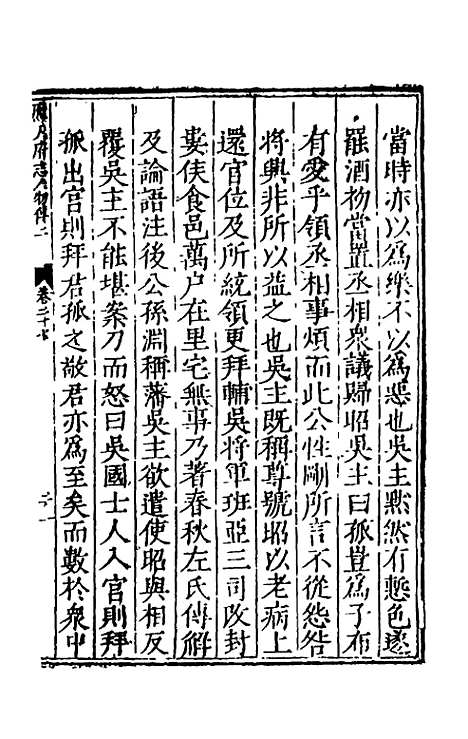 當時亦以爲樂不以爲惡也吳主默然有慙色遂
罷酒初當置丞相衆議歸昭吳主曰孤豈爲子布
有愛乎領丞相事煩而此公性剛所言不從怨咎
將興非所以益之也吳主既稱尊號昭以老病上
還官位及所統領更拜輔吳將軍班亞三司改封
婁侯食邑萬户在里宅無事乃著春秋左氏傳解
及論語注後公孫淵稱藩吳主欲遣使昭與相反
覆吳主不能堪案刀而怒曰吳國士人入宫則拜
孤出宫則拜君孤之敬君亦爲至矣而數於衆中
應天府志人物傳二 卷二十七